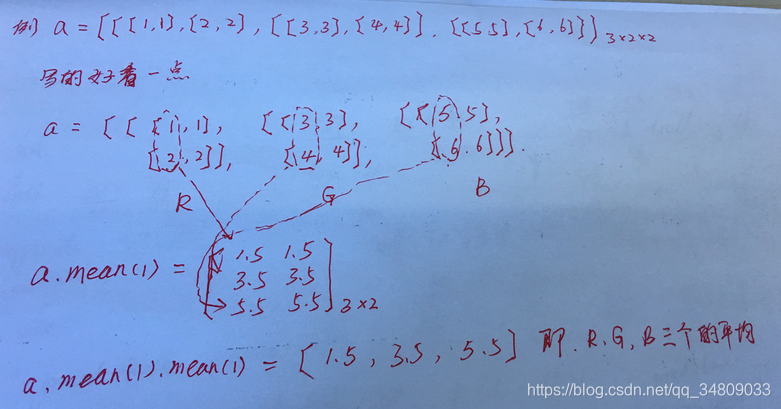 例 a = [[[1,1],[2,2],[[3,3],[4,4]].[[5 5],[6,6]]]3×2×2
写的好看一点
a = [[[1,1], [[3,3], [[5.5],
[2,2]], [4,4]], [6.6]]].
R G B
a.mean(1) = [1.5 1.5
3.5 3.5
5.5 5.5]3×2
a.mean(1).mean(1) = [1.5, 3.5, 5.5] 即.R,G,B三个的平均
https://blog.csdn.net/qq_34809033